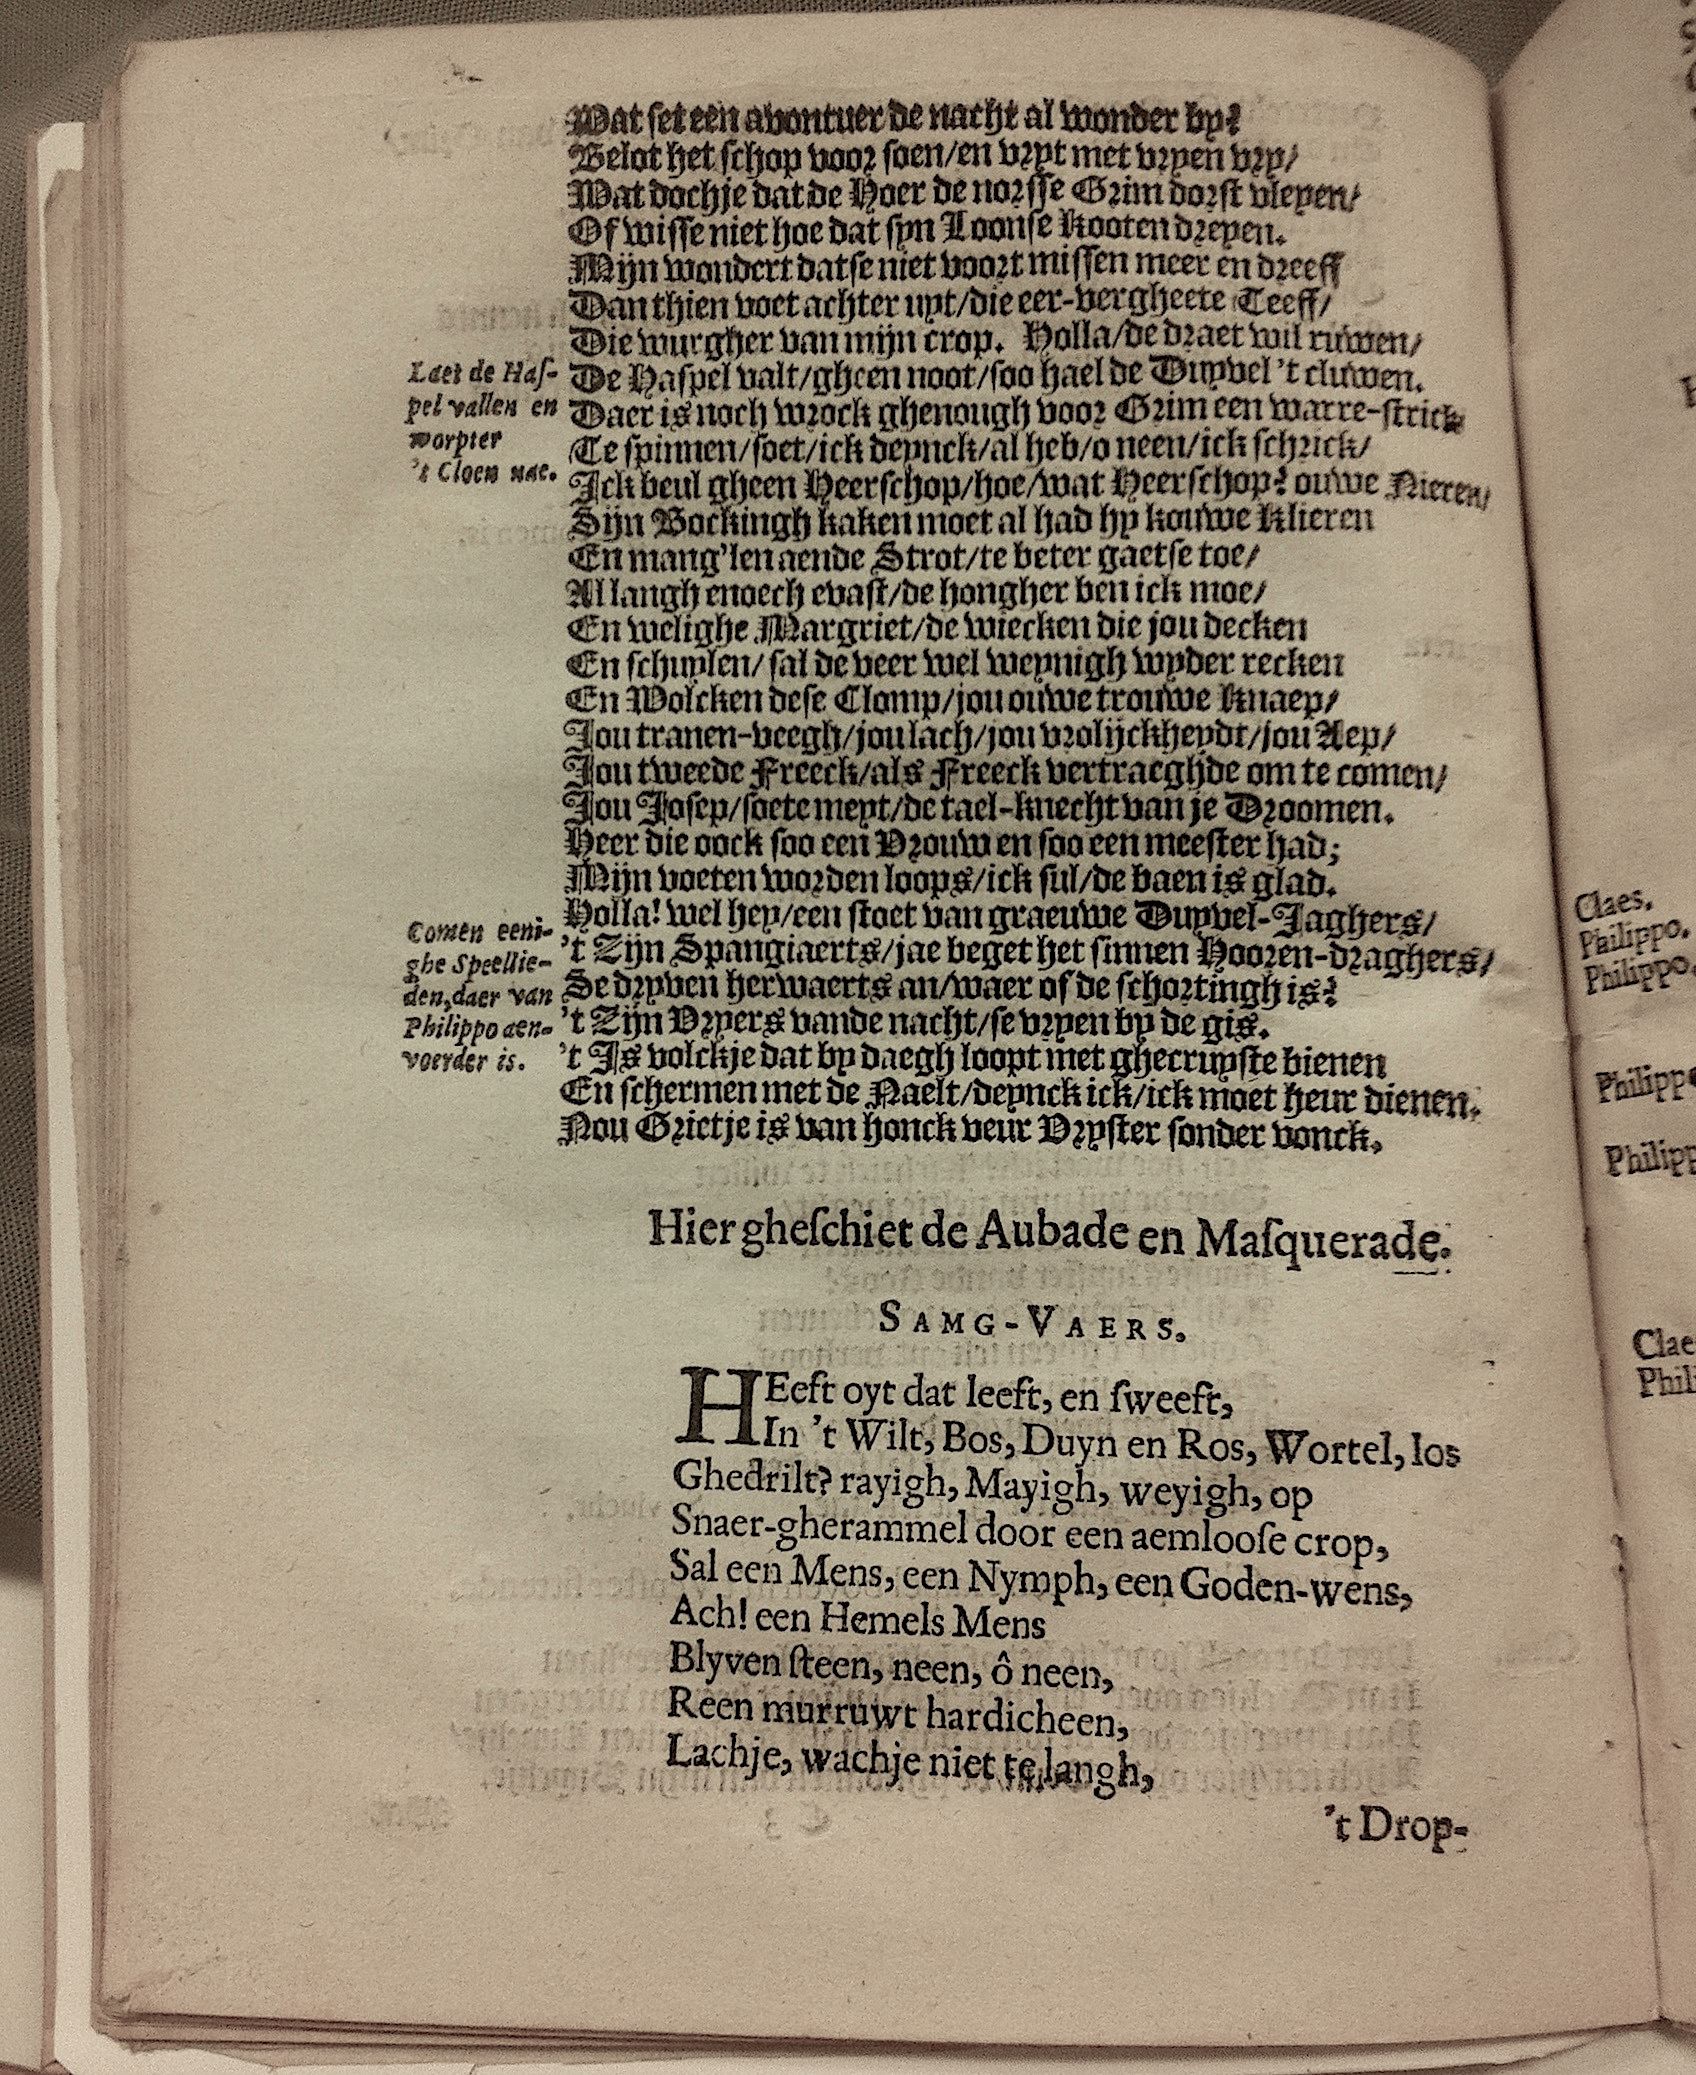 Wat set een avontuer de nacht al wonder by?
Belot het schop voor soen/en vrpt met vrpen vry/
Wat dochje dat de Hoer de norsse Grim dorst vleyen/
Of wisse niet hoe dat syn Loonse Kooten dreyen.
Mijn wondert datse niet voort missen meer en dreeff
Dan thien voet achter uyt/die eer-vergheete Teeff/
Die wurgher van mijn crop. Holla/de draet wil ruwen/
De Haspel valt/gheen noot/soo hael de Duyvel 't cluwen.
Daer is noch wrock ghenough voor Grim een warre-strick
Te spinnen/soet/ick deynck/al heb/o neen/ick schrick/
Ick beul gheen Heerschop/hoe/wat Heerschop? ouwe Nieren/
Sijn Bockingh kaken moet al had hy kouwe Klieren
En mang'len aende Strot/te beter gaetse toe/
Al langh enoech evast/de hongher ben ick moe/
En welighe Margriet/de wiecken die jou decken
En schuylen/sal de veer wel weynigh wyder recken
En Wolcken dese Clomp/jou ouwe trouwe Knaep/
Jou tranen-veegh/jou lach/jou vrolijckheydt/jou Aep/
Jou tweede Freeck/als Freeck vertraeghde om te comen/
Jou Josep/soete meyt/de tael-knecht van je Droomen.
Heer die oock soo een Vrouw en soo een meester had;
Mijn voeten worden loops/ick sul/de baen is glad.
Holla! wel hey/een stoet van graeuwe Duyvel-Jaghers/
't Zijn Spangiaerts/jae beget het sinnen Hooren-draghers/
Se dryven herwaerts an/waer of de schortingh is?
't Zijn Vryers vande nacht/se vryen by de gis.
't Is volckje dat by daegh loopt met ghecruyste bienen
En schermen met de Naelt/deynck ick/ick moet heur dienen.
Nou Grietje is van honck veur Vryster sonder vonck.
Laet de Has-
pel vallen en
worpter
't Cloen nae.
Comen eeni-
ghe Speellie-
den, daer van
Philippo aen-
voerder is.
Hier gheschiet de Aubade en Masquerade.
SAMG-VAERS.
HEeft oyt dat leeft, en sweeft,
In 't Wilt, Bos, Duyn en Ros, Wortel, los
Ghedrilt? rayigh, Mayigh, weyigh, op
Snaer-gherammel door een aemloose crop,
Sal een Mens, een Nymph, een Goden-wens,
Ach! een Hemels Mens
Blyven steen, neen, ô neen,
Reen murruwt hardicheen,
Lachje, wachje niet te langh,
't Drop-
Claes.
Philippo.
Philippo.
Philipp
Philipp
Clae
Phil